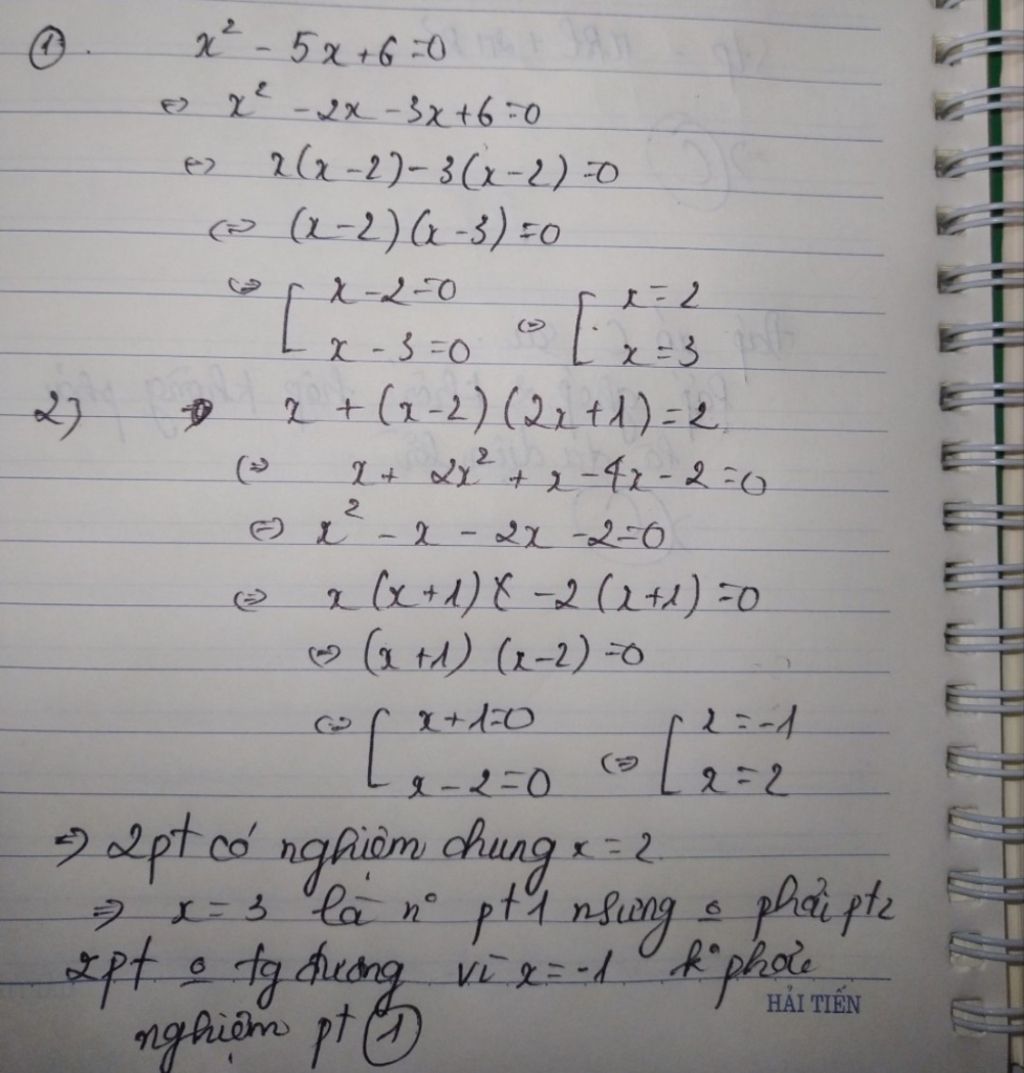 ① . x² - 5x + 6 = 0
⇔ x² - 2x - 3x + 6 = 0
⇔ x(x - 2) - 3(x - 2) = 0
⇔ (x - 2)(x - 3) = 0
⇔ [ x - 2 = 0 ⇔ [ x = 2
x - 3 = 0 x = 3
2) x + (x - 2)(2x + 1) = 2
⇔ x + 2x² + x - 4x - 2 = 0
⇔ x² - x - 2x - 2 = 0
⇔ x(x + 1) - 2(x + 1) = 0
⇔ (x + 1)(x - 2) = 0
⇔ [ x + 1 = 0 ⇔ [ x = -1
x - 2 = 0 x = 2
⇒ 2pt có nghiệm chung x = 2
⇒ x = 3 là n° pt1 nhưng o phải pt2
2pt o tg đương vì x = -1 k° phải
HẢI TIẾN
nghiệm pt ①